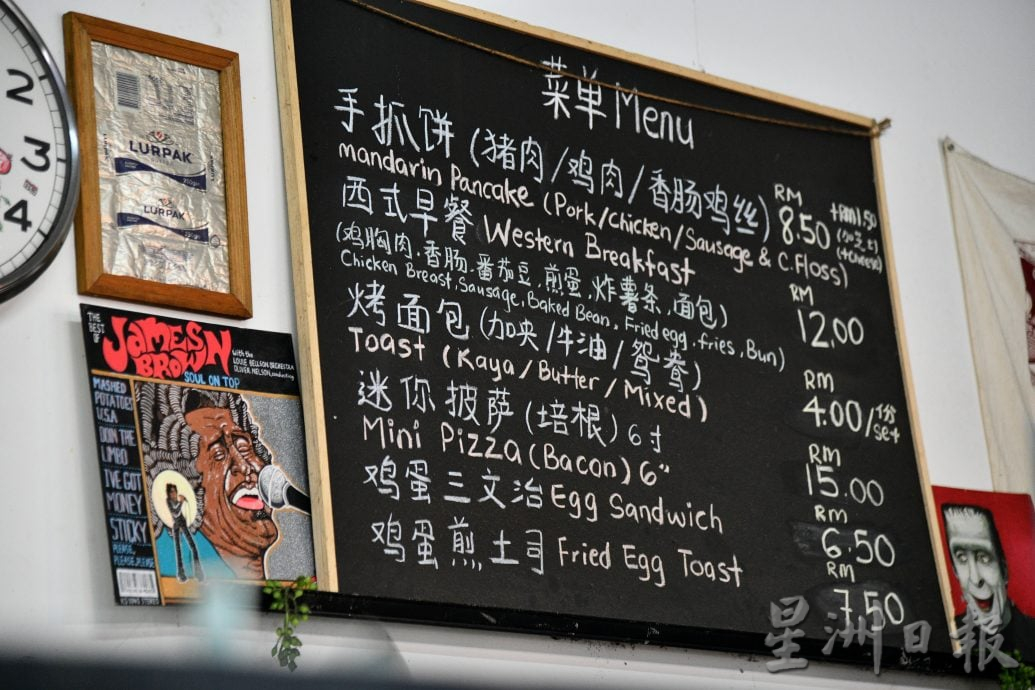 2
3
4
LURPAK
LURPAK
THE BEST OF
JAMES BROWN
With the
LOUIE BELLSON ORCHESTRA
OLIVER NELSON, conducting
SOUL ON TOP
MASHED
POTATOES
U.S.A
LIMBO
I'VE GOT
MONEY
STICKY
PLEASE,
PLEASE, PLEASE
菜单 Menu
手抓饼 (猪肉/鸡肉/香肠鸡丝) RM 8.50 +RM1.50 (加芝士) (+cheese)
mandarin Pancake (Pork/Chicken/Sausage & C.Floss)
西式早餐 Western Breakfast RM 12.00
(鸡胸肉.香肠.番茄豆.煎蛋.炸薯条.面包)
Chicken Breast, Sausage, Baked Bean, Fried egg, fries, Bun)
烤面包 (加央/牛油/鸳鸯) RM 4.00/1份 set
Toast (Kaya/Butter/Mixed)
迷你披萨 (培根) 6寸 RM 15.00
Mini Pizza (Bacon) 6"
鸡蛋三文治 Egg Sandwich RM 6.50
鸡蛋煎土司 Fried Egg Toast RM 7.50
星洲日報